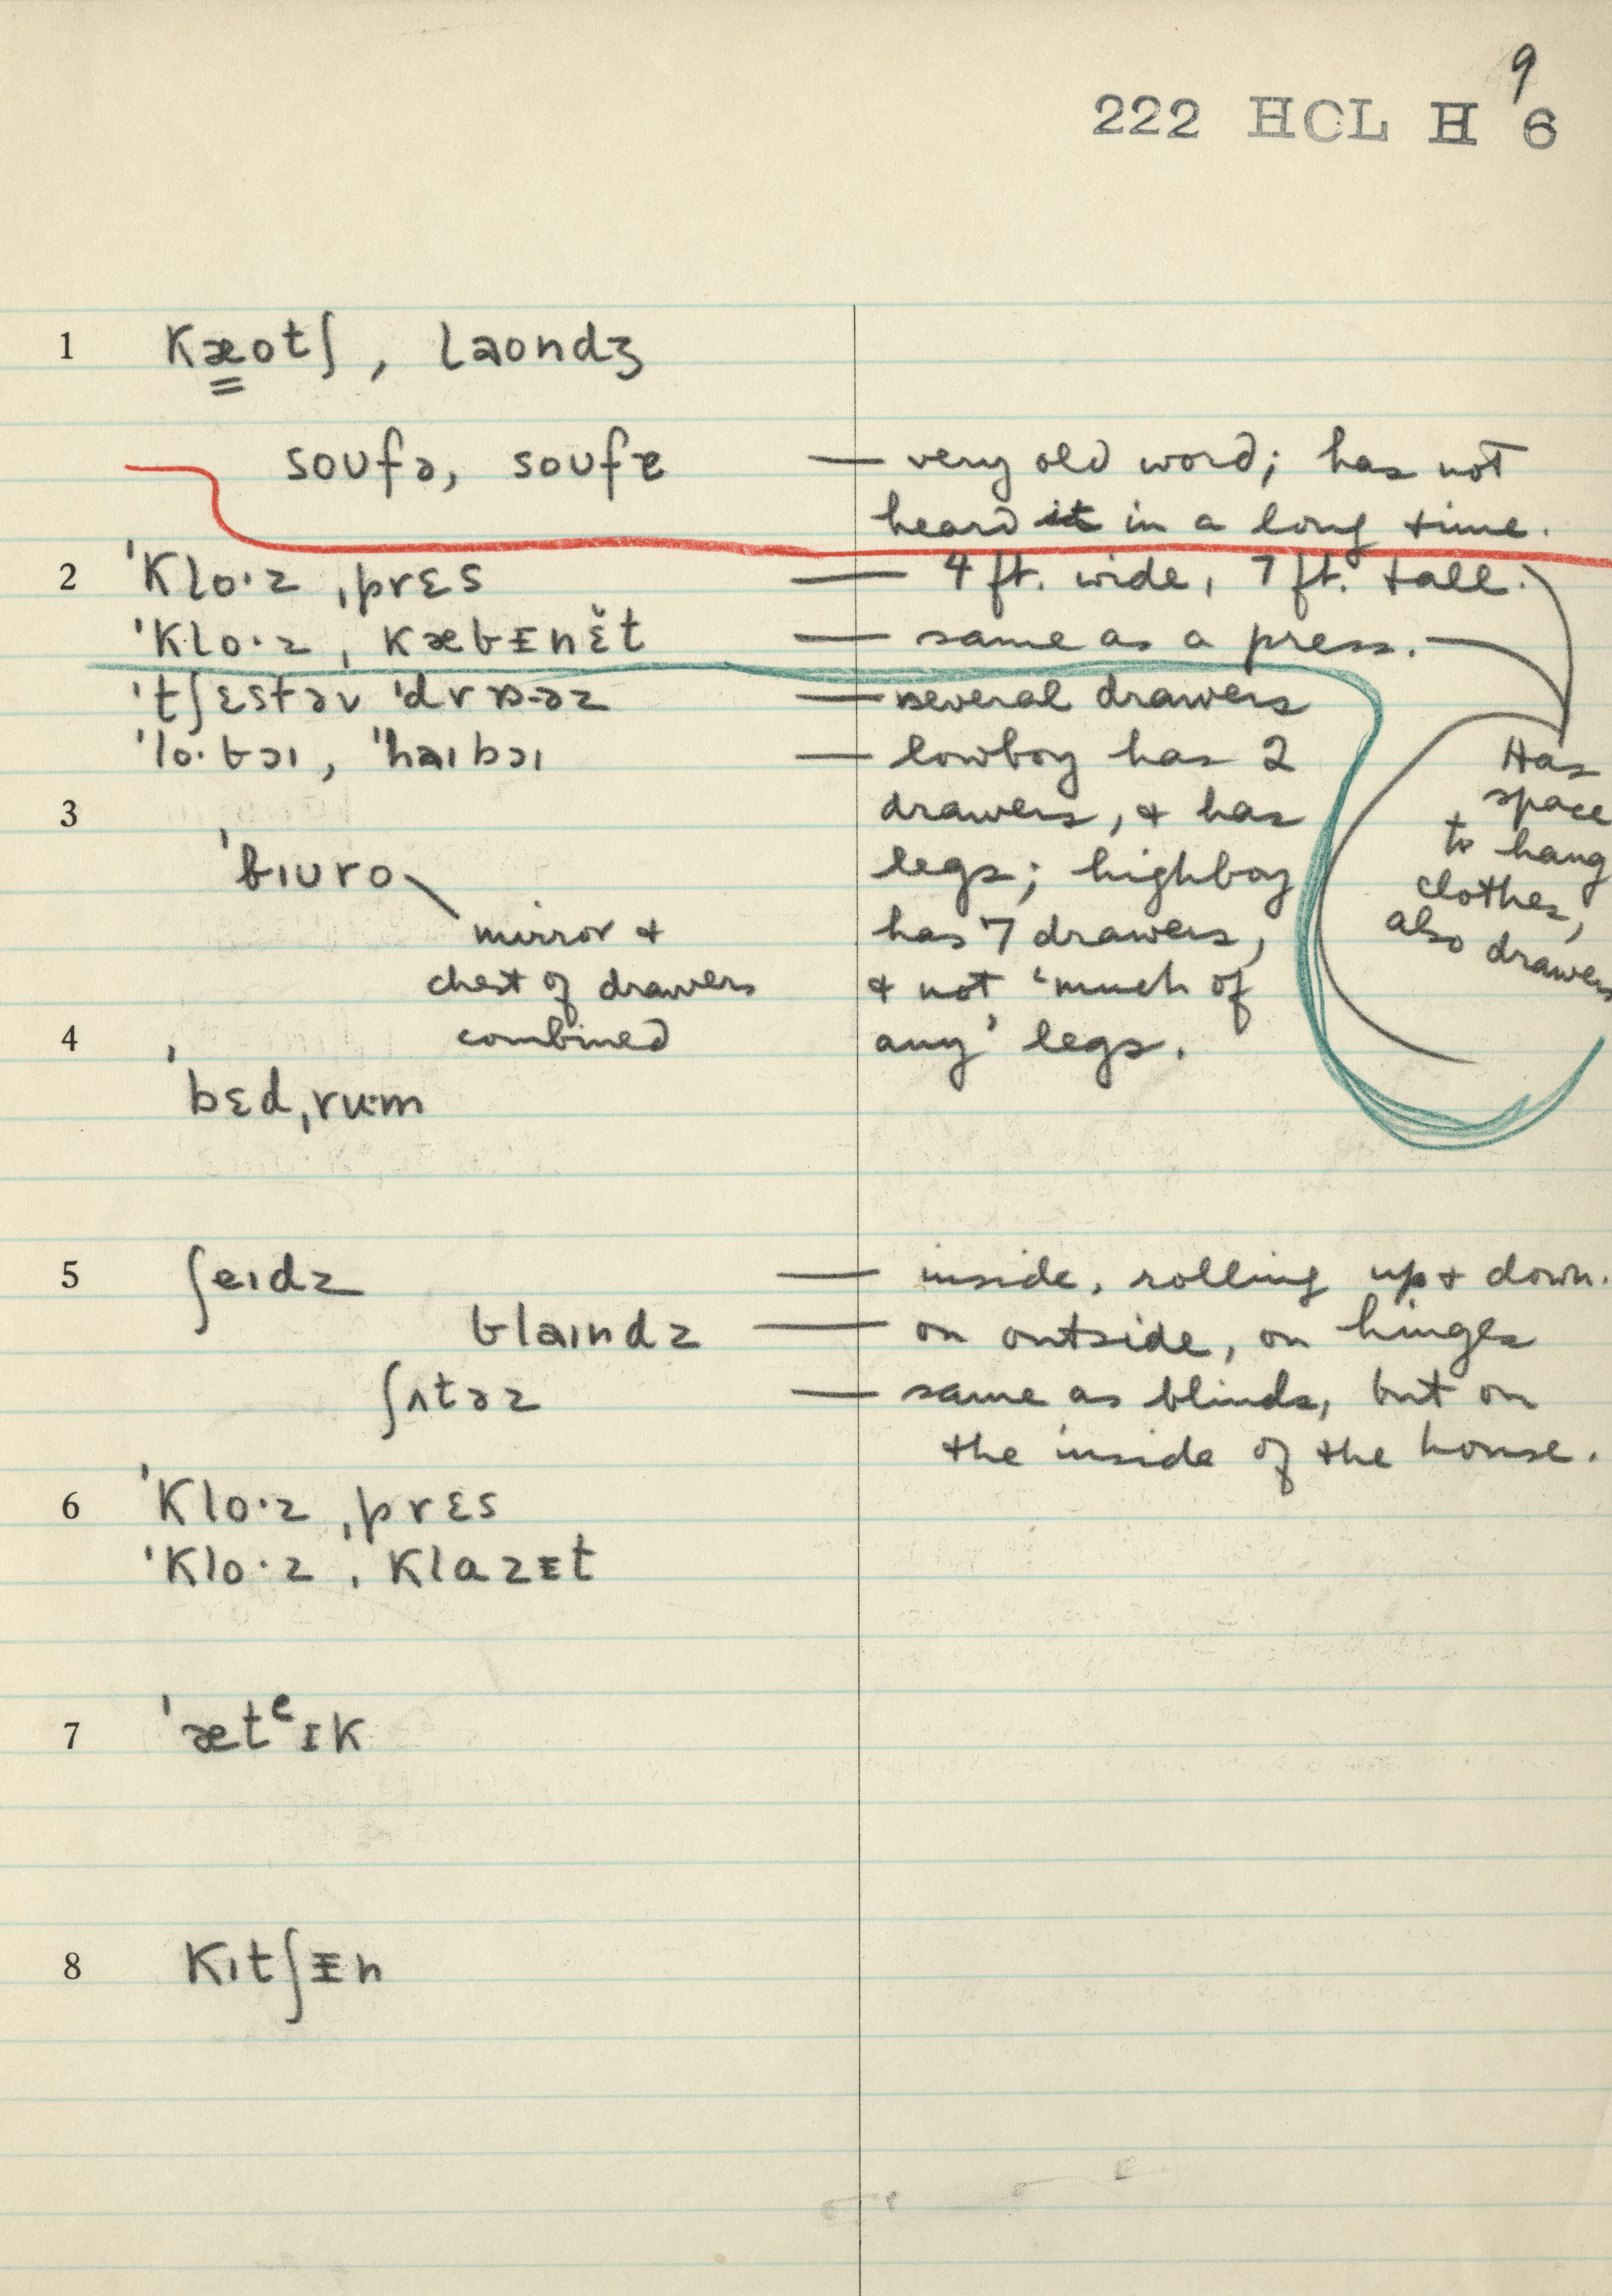 9
222 HCL H 6
1 kæotʃ, laondʒ
soufə, soufɐ — very old word; has not
heard it in a long time.
2 ˈklo·z ˌprɛs — 4 ft. wide, 7 ft. tall.
ˈklo·z ˌkæbᵻnɛ̆t — same as a press.
ˈtʃɛstəv ˈdrɒ·əz — several drawers
ˈlo·bɔɪ, ˈhaɪbɔɪ — lowboy has 2
3 drawers, & has
ˈbɪuro legs; highboy
mirror & has 7 drawers,
chest of drawers & not 'much of
4 combined any' legs.
Has
space
to hang
clothes,
also drawers
ˈbɛdˌrʉ·m
5 ʃeɪdz — inside, rolling up & down.
blaɪndz — on outside, on hinges
ʃʌtəz — same as blinds, but on
the inside of the house.
6 ˈklo·z ˌprɛs
ˈklo·z ˌklazᵻt
7 ˈætᵉɪk
8 kɪtʃᵻn